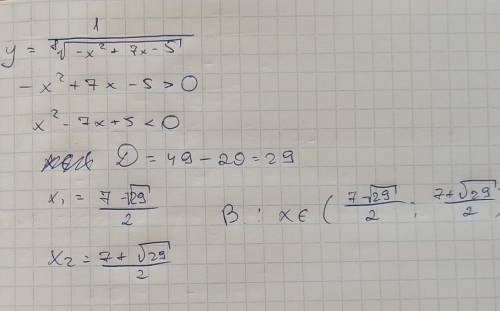 y = 1 / ⁸√(-x² + 7x - 5)
- x² + 7x - 5 > 0
x² - 7x + 5 < 0
D = 49 - 20 = 29
x₁ = (7 - √29) / 2
В : x ∈ ( (7 - √29) / 2 ; (7 + √29) / 2 )
x₂ = (7 + √29) / 2